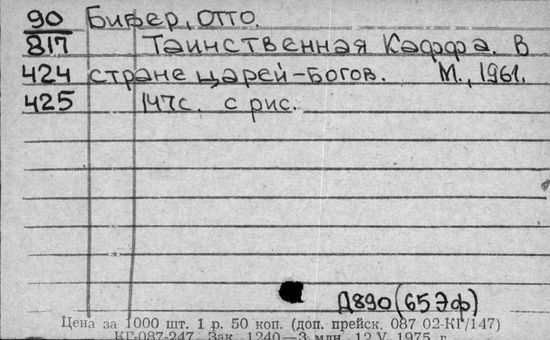 90 Бифер, Отто.
817 Таинственная Каффа. В
424 стране царей-богов. М., 1961.
425 147с. с рис.
Д890(65Эф)
Цена за 1000 шт. 1 р. 50 коп. (доп. прейск. 087 02-КГ/147)
КГ-087-247. Зак. 1240—3 млн. 12.V.1975 г.